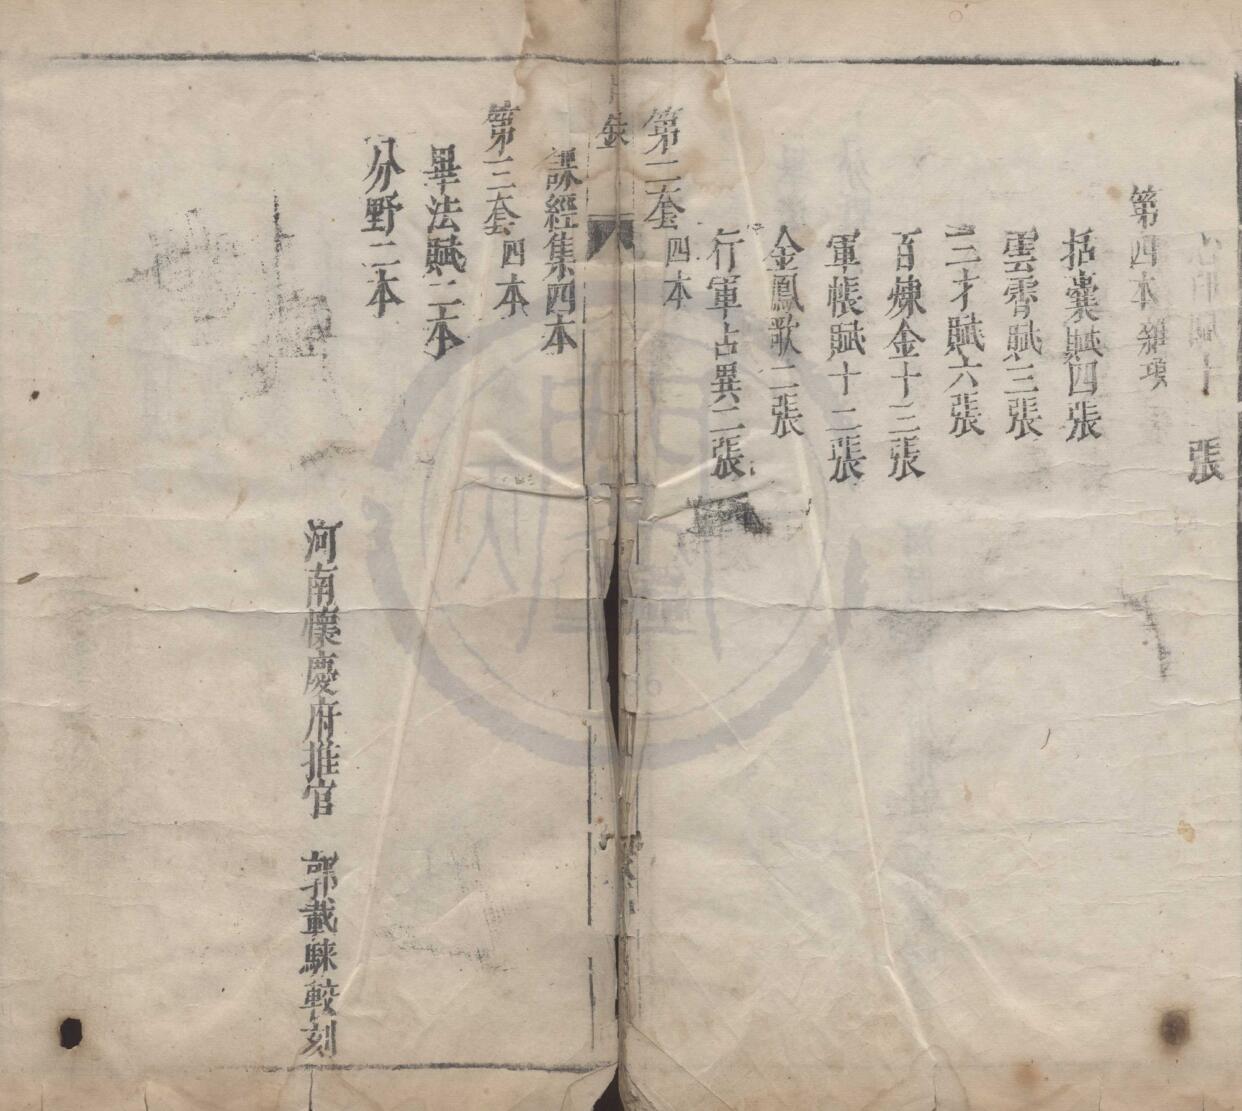 張
第四本雜項
括囊賦四張
雲霄賦三張
三才賦六張
百煉金十三張
軍帳賦十二張
金鳳歌二張
行軍占異二張
第二套四本
錄
課經集四本
第三套四本
畢法賦二本
分野二本
河南懷慶府推官 郭載騋較刻